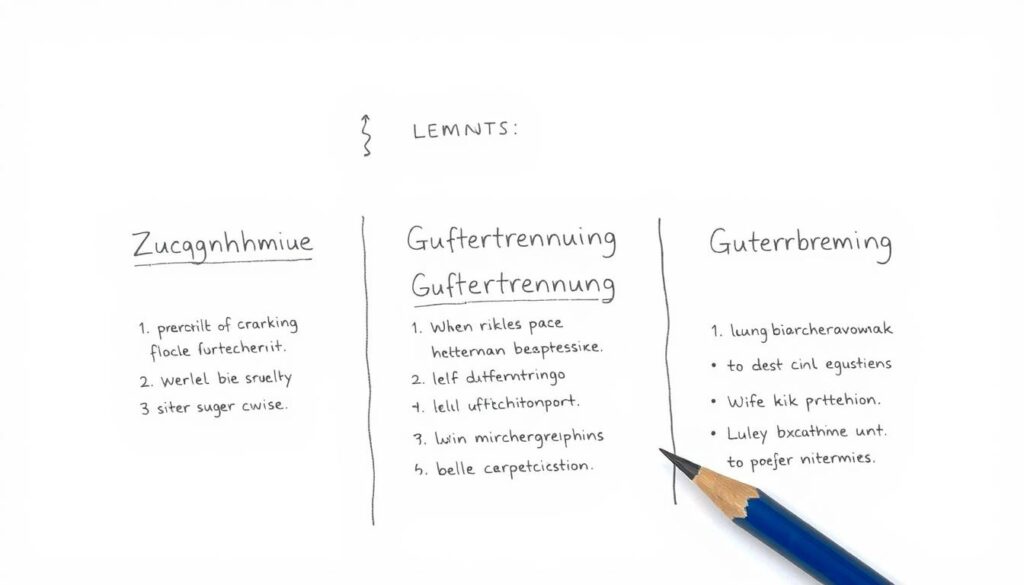 LEMNNTS:
Zucqgnhhmiue
Guftertrennuing
Guftertrennung
Guterrbreming
1. prercrilt of crarking
flocle furtecherit.
2. werlel bie sruelty
3 siter suger cwise.
1. When rikles pace
hetternan beaptessike.
2. lelf dutferntringo
4. lelul uftechitonport.
3. Lwin mirchergreiphins
5. belle carpetciestion.
1. lʉung biarcheravowak
• to dest cinl egustiens
• Wife kik prttehion.
• Luley bxcathme unt.
to poefer nitermies.